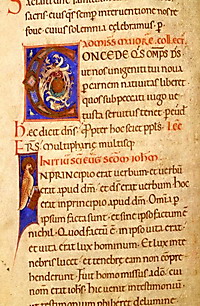 sacris eiusq; semp interuentione nostre
foue. cuius solemnia celebramus. p
Ad missā maiorē collect
CONCEDE QS OMPS DS
ut nos unigeniti tui noua
p carnem natiuitas liberet
quos sub peccati iugo ue
tusta seruitus tenet. p eund
Hec dicit dns. Ppter hoc sciet ppls
Multipharie multisq
Initiū sci eug scdm iohm
INPRINCIPIO erat uerbum et uerbū
erat apud dm. et ds erat uerbum. hoc
erat in principio apud dm. Omia p
ipsum facta sunt. et sine ipso factum ē
nichil. Quod factū ē in ipso uita erat.
et uita erat lux hominum. Et lux in te
nebris lucet. et tenebre eam non conpre
henderunt. Fuit homo missus a dō. cui
nom erat iohs. hic uenit intestimoniū
ut testimonium phiberet delumine